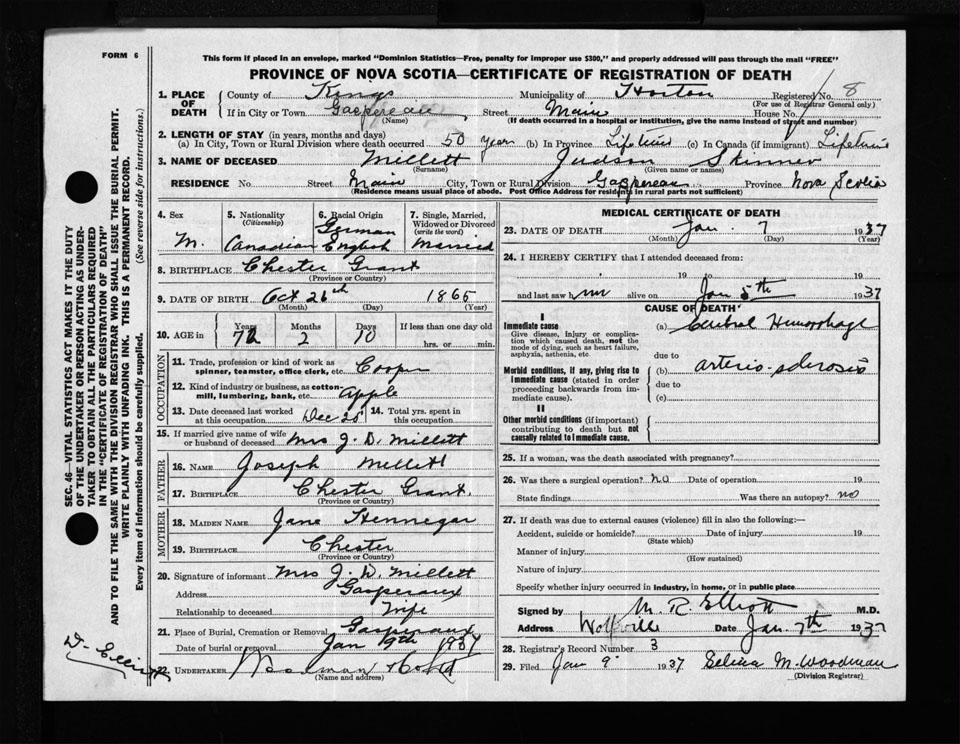 FORM 6
This form if placed in an envelope, marked "Dominion Statistics—Free, penalty for improper use $300," and properly addressed will pass through the mail "FREE"
PROVINCE OF NOVA SCOTIA—CERTIFICATE OF REGISTRATION OF DEATH
1. PLACE OF DEATH
County of Kings Municipality of Horton Registered No. 8
(For use of Registrar General only)
If in City or Town Gaspereau Street Main House No.
(Name) (If death occurred in a hospital or institution, give the name instead of street and number)
2. LENGTH OF STAY (in years, months and days)
(a) In City, Town or Rural Division where death occurred 50 year (b) In Province Lifetime (c) In Canada (if immigrant) Lifetime
3. NAME OF DECEASED Millett Judson Skinner
(Surname) (Given name or names)
RESIDENCE No. Street Main City, Town or Rural Division Gaspereau Province Nova Scotia
(Residence means usual place of abode. Post Office Address for residents in rural parts not sufficient)
SEC. 46—VITAL STATISTICS ACT MAKES IT THE DUTY
OF THE UNDERTAKER OR PERSON ACTING AS UNDER-
TAKER TO OBTAIN ALL THE PARTICULARS REQUIRED
IN THE "CERTIFICATE OF REGISTRATION OF DEATH"
AND TO FILE THE SAME WITH THE DIVISION REGISTRAR WHO SHALL ISSUE THE BURIAL PERMIT.
WRITE PLAINLY WITH UNFADING INK. THIS IS A PERMANENT RECORD.
Every item of information should be carefully supplied. (See reverse side for instructions.)
4. Sex
M.
5. Nationality
(Citizenship)
Canadian
6. Racial Origin
German
English
7. Single, Married,
Widowed or Divorced
(write the word)
Married
8. BIRTHPLACE Chester Grant
(Province or Country)
9. DATE OF BIRTH Oct 26th 1865
(Month) (Day) (Year)
10. AGE in
Years Months Days If less than one day old
72 2 10 hrs. or min.
OCCUPATION
11. Trade, profession or kind of work as
spinner, teamster, office clerk, etc. Cooper
12. Kind of industry or business, as cotton-
mill, lumbering, bank, etc. Apple
13. Date deceased last worked
at this occupation Dec 20
14. Total yrs. spent in
this occupation
15. If married give name of wife
or husband of deceased Mrs J. D. Millett
FATHER
16. NAME Joseph Millett
17. BIRTHPLACE Chester Grant.
(Province or Country)
MOTHER
18. MAIDEN NAME Jane Hennegar
19. BIRTHPLACE Chester
(Province or Country)
20. Signature of informant Mrs J. D. Millett
Address Gaspereaux
Relationship to deceased Wife
21. Place of Burial, Cremation or Removal Gaspereaux
Date of burial or removal Jan 9th 1937
22. UNDERTAKER
(Name and address)
MEDICAL CERTIFICATE OF DEATH
23. DATE OF DEATH Jan. 7 1937
(Month) (Day) (Year)
24. I HEREBY CERTIFY that I attended deceased from:
19 to 19
and last saw him alive on Jan 5th 1937
CAUSE OF DEATH
I
Immediate cause
Give disease, injury or complica-
tion which caused death, not the
mode of dying, such as heart failure,
asphyxia, asthenia, etc.
(a) Cerebral Hemorrhage
due to
Morbid conditions, if any, giving rise to
immediate cause (stated in order
proceeding backwards from im-
mediate cause).
(b) arterio-sclerosis
due to
(c)
II
Other morbid conditions (if important)
contributing to death but not
causally related to immediate cause.
25. If a woman, was the death associated with pregnancy?
26. Was there a surgical operation? no Date of operation 19
State findings Was there an autopsy? no
27. If death was due to external causes (violence) fill in also the following:—
Accident, suicide or homicide? Date of injury 19
(State which)
Manner of injury
(How sustained)
Nature of injury
Specify whether injury occurred in industry, in home, or in public place
Signed by M. R. Elliott M.D.
Address Wolfville Date Jan. 7th 1937
28. Registrar's Record Number 3
29. Filed Jan 9 1937 Selina M. Woodman
(Division Registrar)